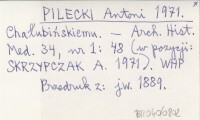 PILECKI Antoni 1971.
Chałubińskiemu. – Arch. Hist.
Med. 34, nr 1: 48 (w pozycji:
SKRZYPCZAK A. 1971). WHP
Przedruk z: jw. 1889.